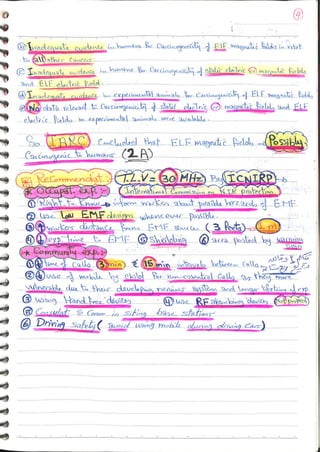 ④
ⓑ Inadequate evidence in humans for Carcinogenicity of ELF magnetic fields in relat
to all other Cancers
ⓒ Inadequate evidence in humans for Carcinogenicity of static electric or magnetic fields
and ELF electric fields.
ⓓ Inadequate evidence in experimental animals for Carcinogenicity of ELF magnetic fields.
ⓔ No data relevant to Carcinogenicity of static electric or magnetic fields and ELF
electric fields in experimental animals were available.
So IARC Concluded that ELF magnetic fields → Possibly
Carcinogenic to humans (2A)
Recommendat. T.L.V = 30 MHz By ICNIRP
* Occupat. exp: International Commission on NIR protection
① Right to Know → inform workers about possible hazards of EMF
② use low EMF designs whenever possible.
③ workers distance from EMF sources (3 feet)
④ exp. time to EMF ⑤ Shielding ⑥ area posted by warning
* Community exp:
① time of calls 3 min & 15 min intervals between calls
② use of mobile by child for non-essential Calls as they more
vulnerable due to their developing nervous system and longer lifetime of exp
③ using Hand free devices ④ use RF absorbing devices
⑤ Consult & Comm. in siting base stations
⑥ Driving safety (avoid using mobile during driving Cars)